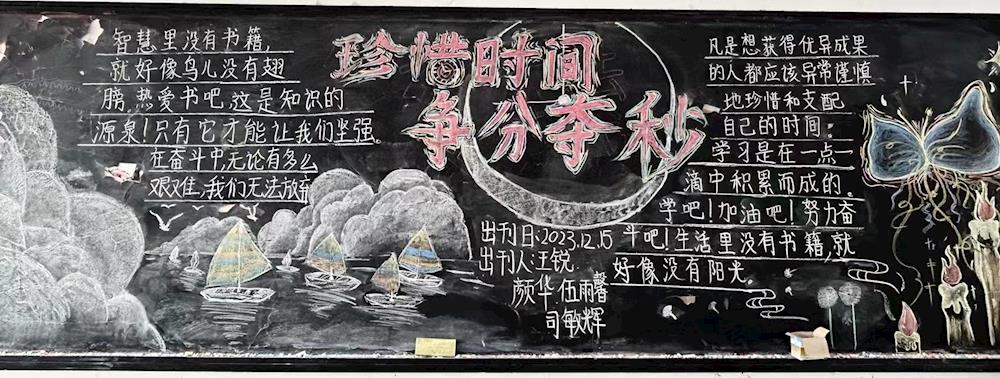 珍惜时间
争分夺秒
智慧里没有书籍,
就好像鸟儿没有翅
膀,热爱书吧,这是知识的
源泉!只有它才能让我们坚强。
在奋斗中无论有多么
艰难,我们无法放弃
出刊日:2023.12.15
出刊人:王锐
颜华 伍雨馨
司敏辉
凡是想获得优异成果
的人都应该异常谨慎
地珍惜和支配
自己的时间。
学习是在一点一
滴中积累而成的。
学吧!加油吧!努力奋
斗吧!生活里没有书籍,就
好像没有阳光。